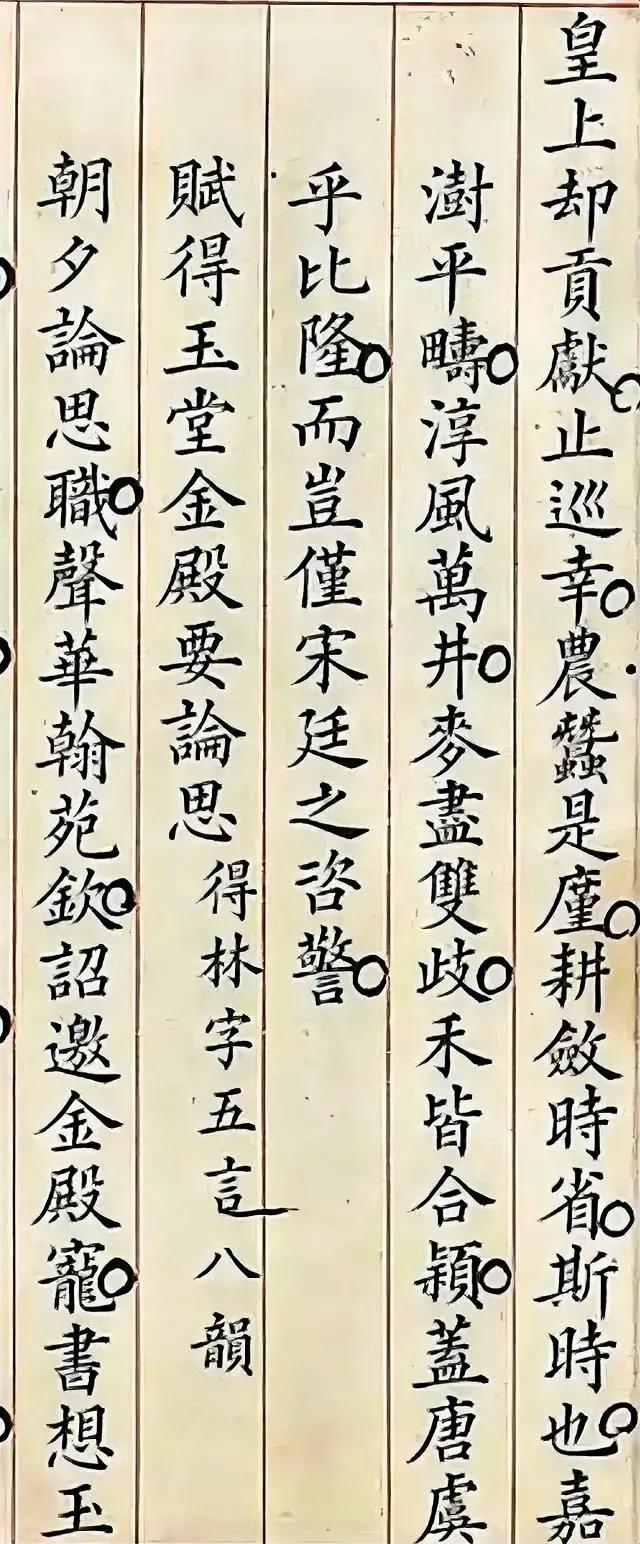 皇上却貢獻止巡幸農蠶是廑耕斂時省斯時也嘉
澍平疇淳風萬井麥盡雙歧禾皆合穎蓋唐虞
乎比隆而豈僅宋廷之咨警
賦得玉堂金殿要論思得林字五言八韻
朝夕論思職聲華翰苑欽詔邀金殿寵書想玉